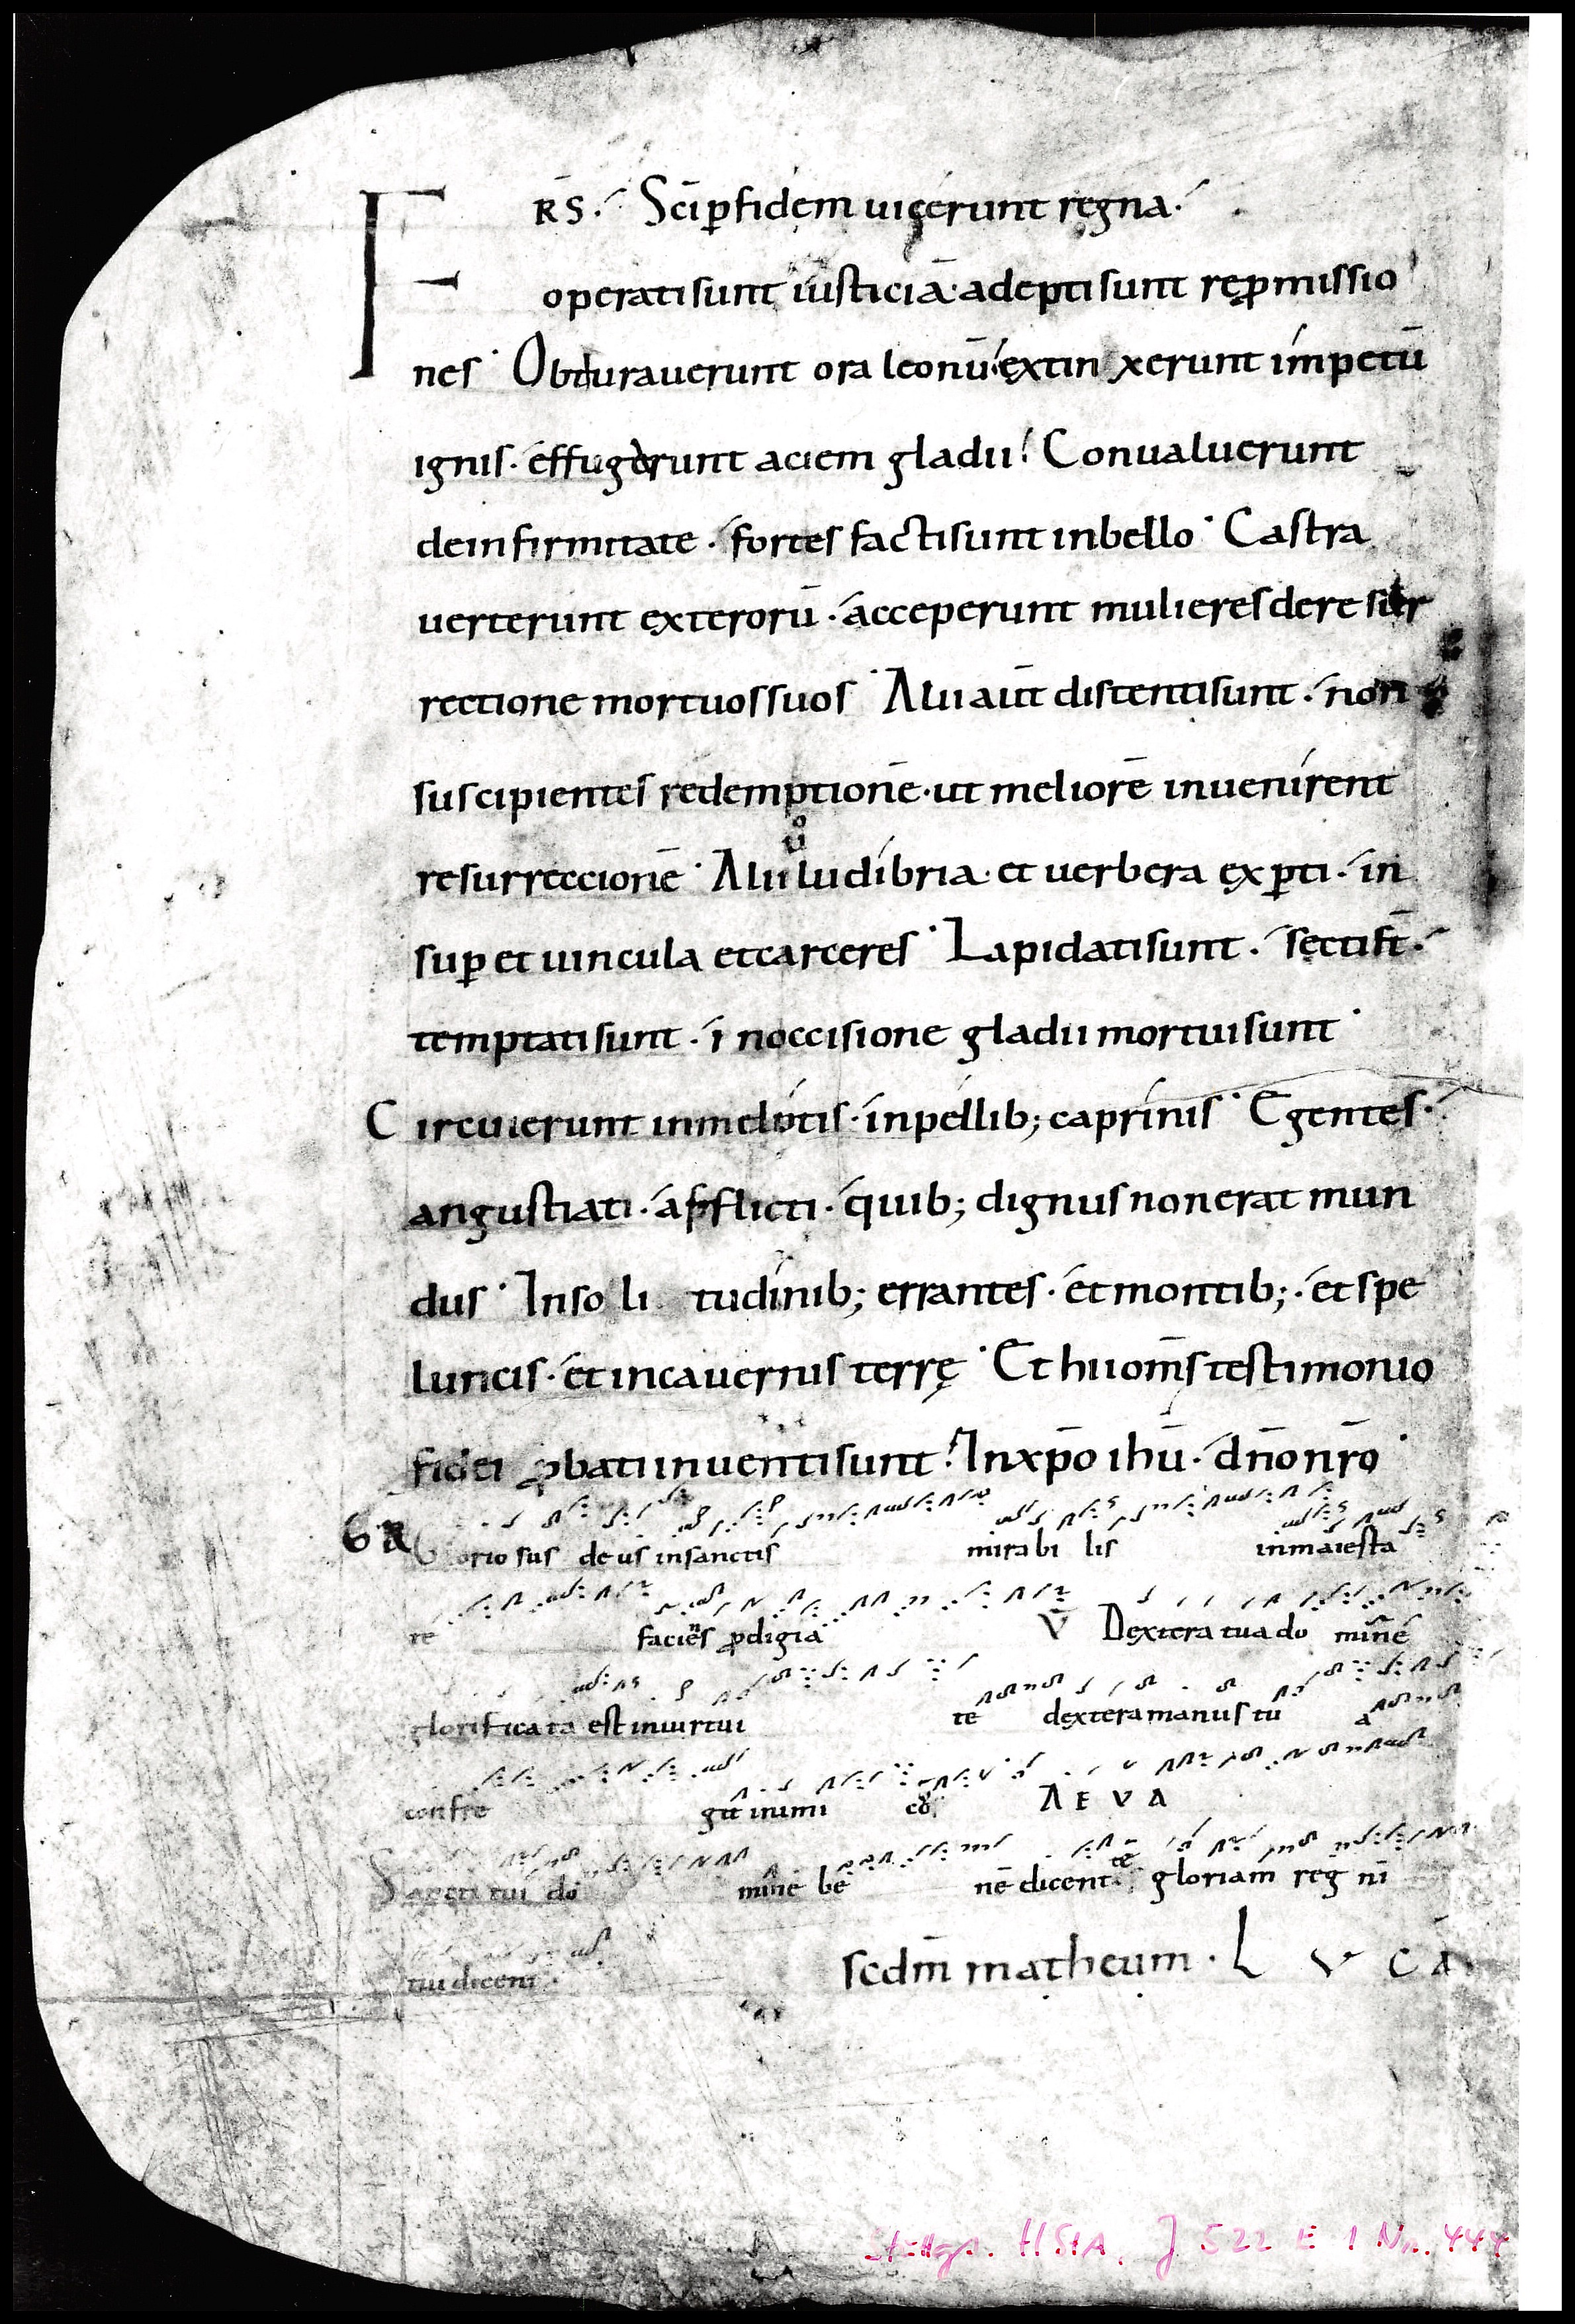 F RS. Sci ꝑ fidem uicerunt regna.
operati sunt iusticiā. adepti sunt reꝓmissio
nes. Obturauerunt ora leonū. extinxerunt impetū
ignis. effugerunt aciem gladii. Conualuerunt
de infirmitate. fortes facti sunt in bello. Castra
uerterunt exterorū. acceperunt mulieres de resur
rectione mortuos suos. Alii aūt distenti sunt. non
suscipientes redemptionē. ut meliorē inuenirent
resurreccionē. Alii ůo ludibria. et uerbera exꝑti. in
suꝑ et uincula et carceres. Lapidati sunt. secti st̄.
temptati sunt. in occisione gladii mortui sunt.
Circuierunt in melotis. in pellib; caprinis. Egentes.
angustiati. afflicti. quib; dignus non erat mun
dus. In solitudinib; errantes. et montib;. et spe
luncis. et in cauernis terrę. Et hii om̄s testimonio
fidei ꝓbati inuenti sunt. In xp̄o ihū. dn̄o nr̄o.
GR Gloriosus deus in sanctis mirabilis in maiesta
te faciens ꝓdigia V̄ Dextera tua domine
glorificata est in uirtute dextera manus tua
confregit inimicos. AEVA
Sancti tui domine benedicent te gloriam regni
tui dicent.
scdm̄ matheum. L V C A
Stuttgt. HStA. J 522 E 1 Nr. 444